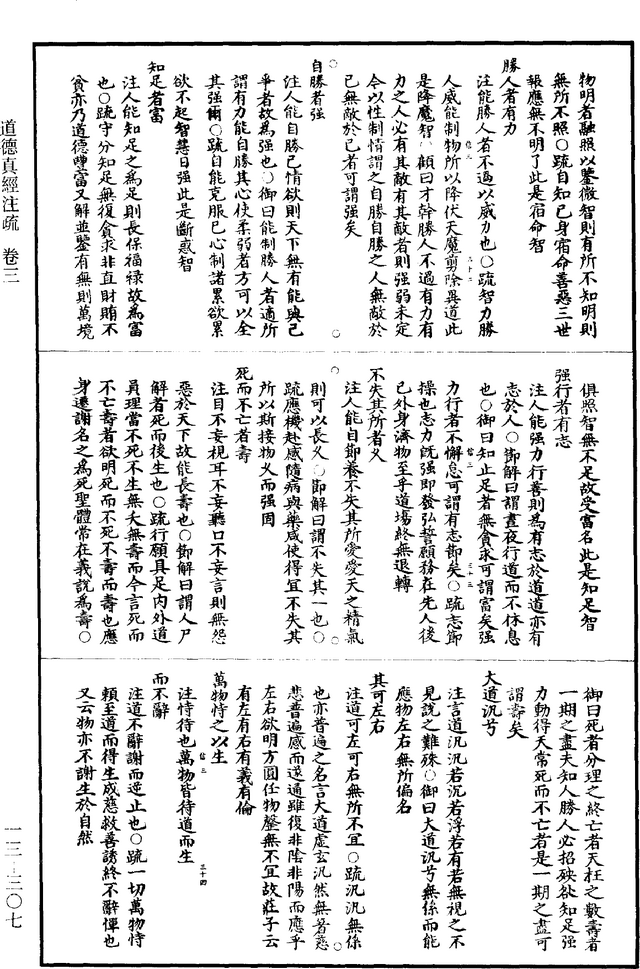 物明者融照以鑒微智則有所不知明則
無所不照○疏自知己身宿命善惡三世
報應無不明了此是宿命智
勝人者有力
注能勝人者不過以威力也○疏智力勝
人威能制物所以降伏天魔剪除異道此
是降魔智○顧曰才幹勝人不過有力有
力之人必有其敵有其敵者則强弱未定
今以性制情謂之自勝自勝之人無敵於
己無敵於已者可謂强矣
自勝者强
注人能自勝己情欲則天下無有能與己
爭者故為强也○御曰能制勝人者適所
謂有力能自勝其心使柔弱者方可以全
其强爾○疏自能克服己心制諸累欲累
欲不起智慧日强此是斷惑智
知足者富
注人能知足之為足則長保福禄故為富
也○疏守分知足無復貪求非直財賄不
貪亦乃道德豐富又解並鑒有無則萬境
俱照智無不足故受富名此是知足智
强行者有志
注人能强力行善則為有志於道道亦有
志於人○節解曰謂晝夜行道而不休息
也○御曰知止足者無貪求可謂富矣强
力行者不懈怠可謂有志節矣○疏志節
操也志力既强即發弘誓願務在先人後
己外身濟物至乎道場終無退轉
不失其所者久
注人能自節養不失其所愛受天之精氣
則可以長久○節解曰謂不失其一也○
疏應機赴感隨病與藥咸使得宜不失其
所以斯接物久而强固
死而不亡者壽
注目不妄視耳不妄聽口不妄言則無怨
惡於天下故能長壽也○節解曰謂人尸
解者死而後生也○疏行願具足内外道
員理當不死不生無夭無壽而今言死而
不亡壽者欲明死而不死不壽而壽也應
身遷謝名之為死聖體常在義說為壽○
御曰死者分理之終亡者夭枉之數壽者
一期之盡夫知人勝人必招殃欲知足强
力動得天常死而不亡者是一期之盡可
謂壽矣
大道汎兮
注言道汎汎若沉若浮若有若無視之不
見說之難殊○御曰大道汎兮無係而能
應物左右無所偏名
其可左右
注道可左可右無所不宜○疏汎汎無係
也亦普遍之名言大道虛玄汎然無著慈
悲普遍感而遂通雖復非陰非陽而應乎
左右欲明方圓任物罄無不宜故莊子云
有左有右有義有倫
萬物恃之以生
注恃待也萬物皆待道而生
而不辭
注道不辭謝而逆止也○疏一切萬物恃
賴至道而得生成慈救善誘終不辭憚也
又云物亦不謝生於自然
道德真經注疏 卷三
一三—三〇七